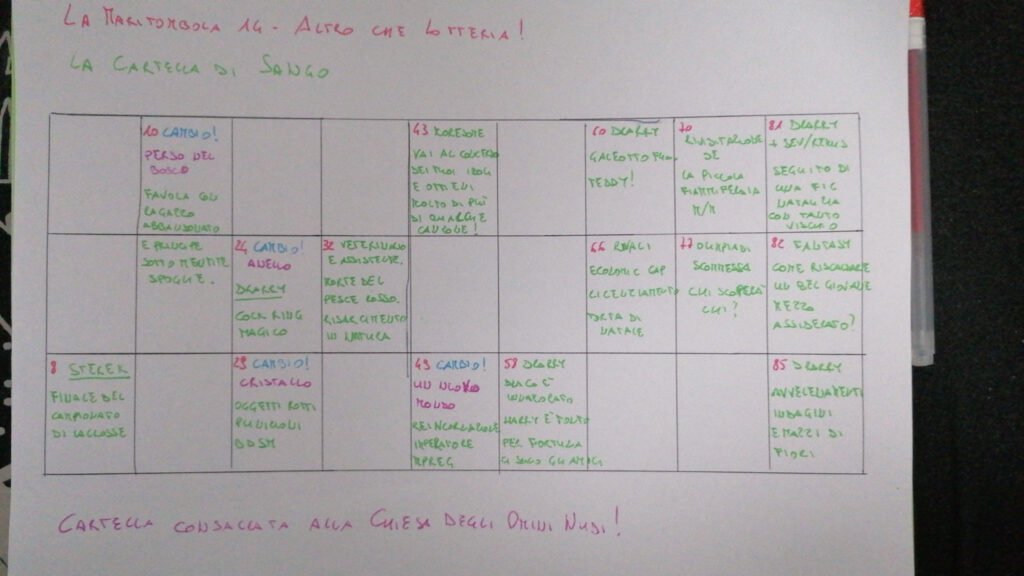 La Maritombola 14 - Altro che lotteria!
La Cartella di Sango
10 CAMBIO!
PERSO NEL
BOSCO
FAVOLA CON
RAGAZZO
ABBANDONATO
E PRINCIPE
SOTTO MENTITE
SPOGLIE.
43 KOREDOME
VAI AL CONCERTO
DEI TUOI IDOL
E OTTIENI
MOLTO DI PIÙ
DI QUALCHE
CANZONE!
60 DRARRY
GALEOTTO FU
TEDDY!
70
RIVISITAZIONE
DE
LA PICCOLA
FIAMMIFERAIA
M/M
81 DRARRY
+ SEV/REMUS
SEGUITO DI
UNA FIC
NATALIZIA
CON TANTO
VISCHIO
24 CAMBIO!
ANELLO
DRARRY
COCK RING
MAGICO
32 VETERINARIO
E ASSISTENTE.
MORTE DEL
PESCE ROSSO.
RISARCIMENTO
IN NATURA
66 REYLI
ECONOMIC CAP
LICENZIAMENTO
TORTA DI
NATALE
77 OLIMPIADI
SCOMMESSA
CHI SCOPERÀ
CHI?
82 FANTASY
COME RISCALDARE
UN BEL GIOVANE
MEZZO
ASSIDERATO?
8 STEREK
FINALE DEL
CAMPIONATO
DI LACROSSE
29 CAMBIO!
CRISTALLO
OGGETTI ROTTI
PUNIZIONI
BDSM
49 CAMBIO!
UN NUOVO
MONDO
REINCARNAZIONE
IMPERATORE
MPREG
58 DRARRY
DRACO È
INNAMORATO
HARRY È TONTO
PER FORTUNA
CI SONO GLI AMICI
85 DRARRY
AVVELENAMENTI
INDAGINI
E MAZZI DI
FIORI
Cartella consacrata alla Chiesa degli Omini Nudi!